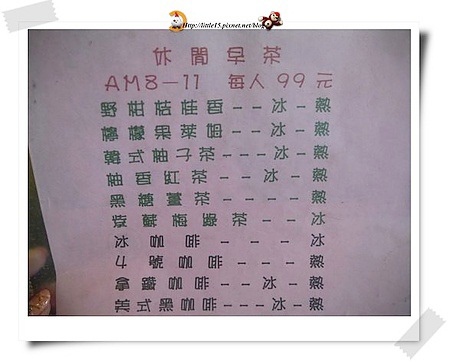 Http://little15.pixnet.net/blog
休閒早茶
AM8-11 每人99元
野柑桔桂香--冰-熱
檸檬果萊姆--冰-熱
韓式柚子茶---冰-熱
柚香紅茶--冰-熱
黑糖薑茶----熱
紫蘇梅綠茶--冰
冰咖啡---冰
4號咖啡---熱
拿鐵咖啡--冰-熱
美式黑咖啡---冰-熱